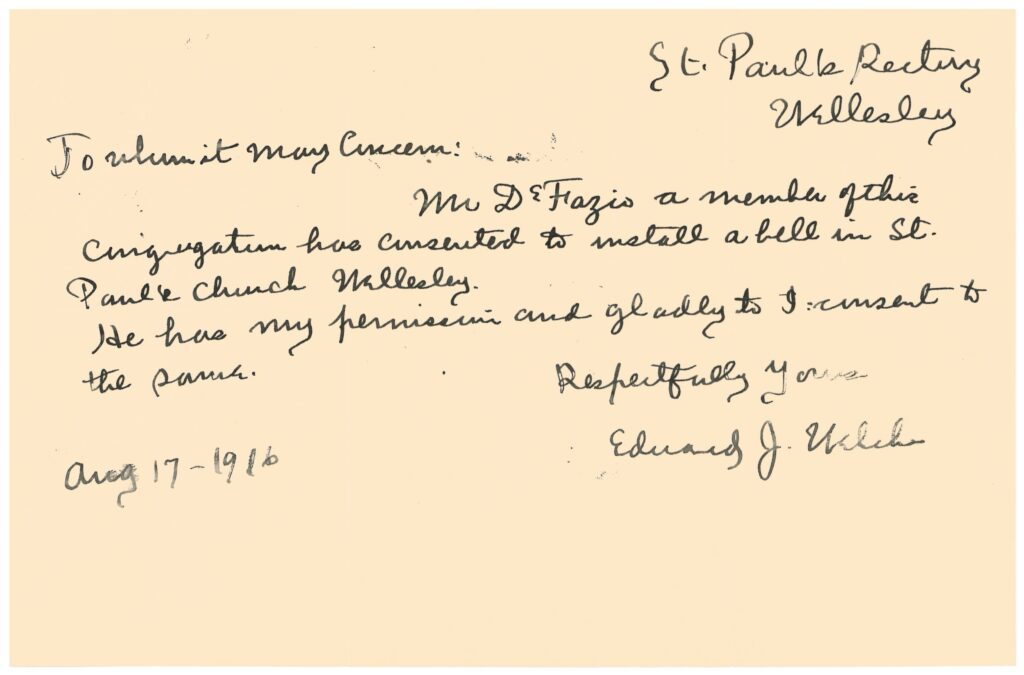 St. Paul's Rectory
Wellesley
To whom it may Concern:
Mr DeFazio a member of this
congregation has consented to install a bell in St.
Paul's Church Wellesley.
He has my permission and gladly do I consent to
the same.
Respectfully Yours
Edward J. Welch
Aug 17-1916